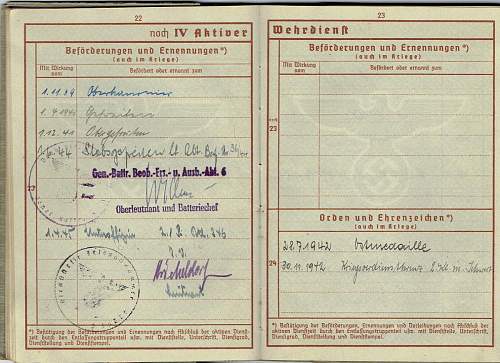 22
noch IV Aktiver
Beförderungen und Ernennungen*)
(auch im Kriege)
Mit Wirkung vom
Befördert oder ernannt zum
1.11.39 Oberkanonier
Gefreiten
1.12.41 Obergefreiten
Stabsgefreiten lt. Abt. Bef. Nr.
23
Gen.-Battr. Beob.-Ers.- u. Ausb.-Abt. 6
Oberleutnant und Batteriechef
1.4.45 Unteroffizier
Leutnant
*) Bestätigung der Beförderungen und Ernennungen nach Abschluß der aktiven Dienst-
zeit durch den Entlassungstruppenteil usw. mit Dienststelle, Unterschrift, Dienstgrad,
Dienststellung und Dienststempel.
23
Wehrdienst
Beförderungen und Ernennungen*)
(auch im Kriege)
Mit Wirkung vom
Befördert oder ernannt zum
noch
23
Orden und Ehrenzeichen*)
(auch im Kriege)
28.7.1942 Ostmedaille
24
30.11.1942 Kriegsverdienstkreuz 2. Kl. m. Schwert.
*) Bestätigung der Beförderungen, Ernennungen und Verleihungen nach Abschluß der
aktiven Dienstzeit durch den Entlassungstruppenteil usw. mit Dienststelle, Unterschrift,
Dienstgrad, Dienststellung und Dienststempel.